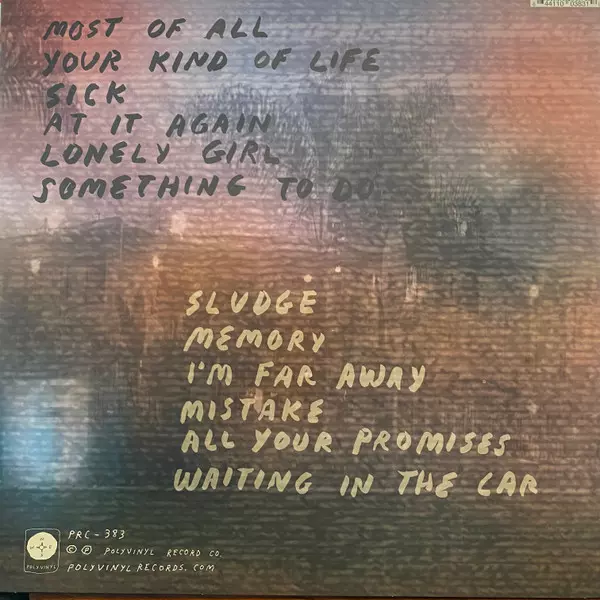 MOST OF ALL
YOUR KIND OF LIFE
SICK
AT IT AGAIN
LONELY GIRL
SOMETHING TO DO
SLUDGE
MEMORY
I'M FAR AWAY
MISTAKE
ALL YOUR PROMISES
WAITING IN THE CAR
PRC-383
© ℗ POLYVINYL RECORD CO.
POLYVINYL
POLYVINYLRECORDS.COM